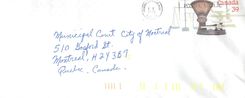 Canada
39
Municipal Court City of Montreal
510 Gosford St.
Montreal, H2Y3B7
Quebec, Canada.